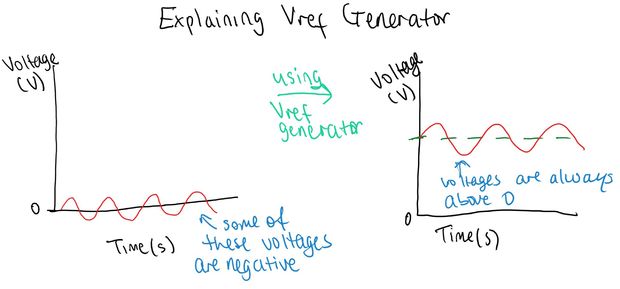 Explaining Vref Generator
Voltage
(V)
0
Time(s)
some of
these voltages
are negative
using
Vref
generator
Voltage
(V)
voltages are always
above 0
0
Time(s)